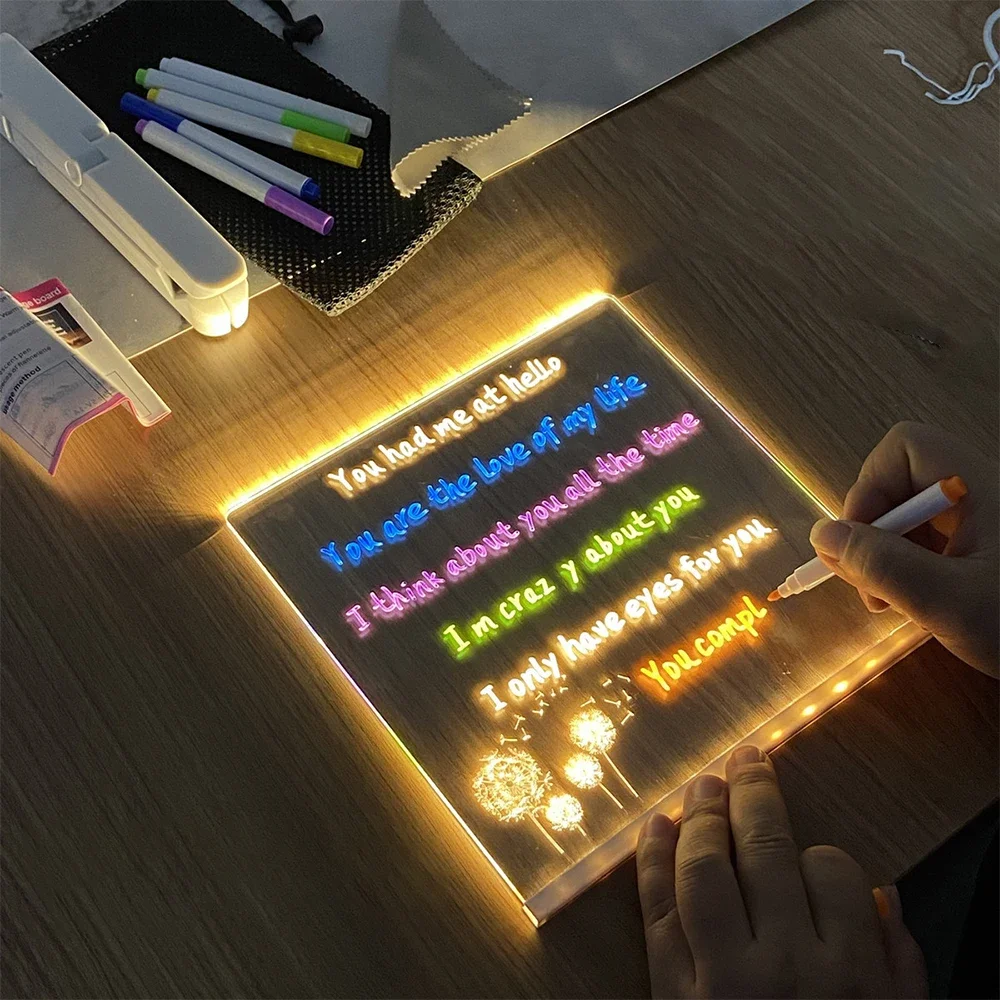 You had me at hello
You are the love of my life
I think about you all the time
I m craz y about you
I only have eyes for you
You compl
ge board
usage method